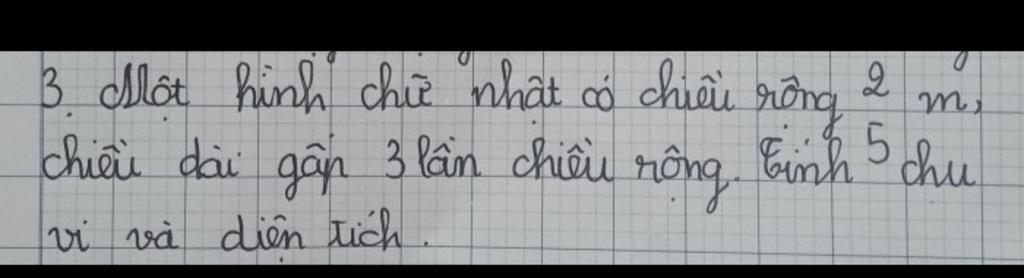 3. Một hình chữ nhật có chiều rộng 2/5 m,
chiều dài gấp 3 lần chiều rộng. Tính chu
vi và diện tích.